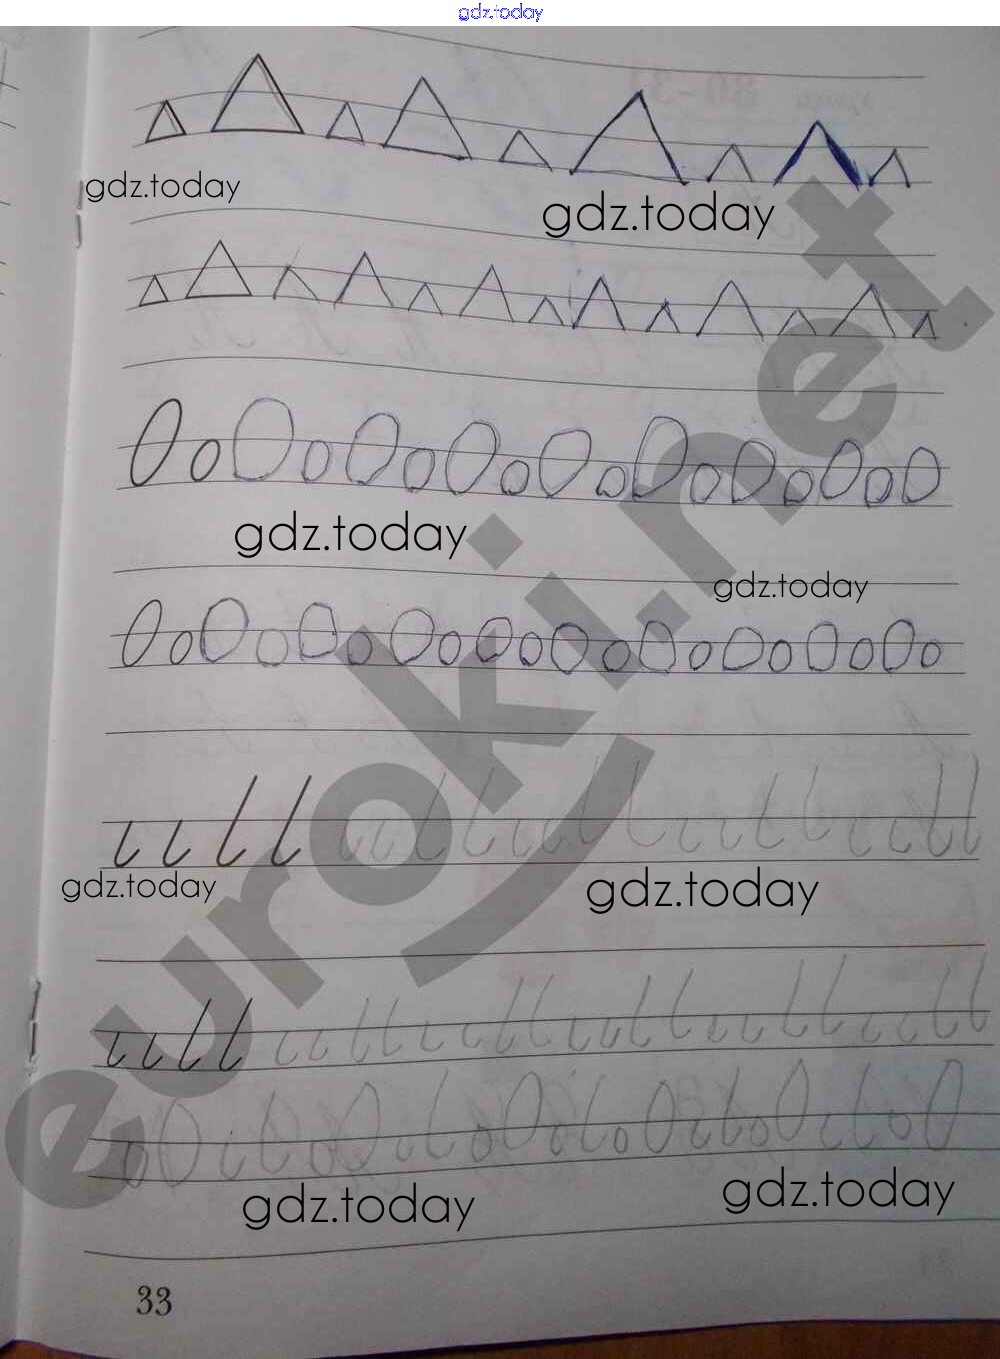 gdz.today
gdz.today
gdz.today
gdz.today
gdz.today
euroki.net
gdz.today
gdz.today
gdz.today
gdz.today
33